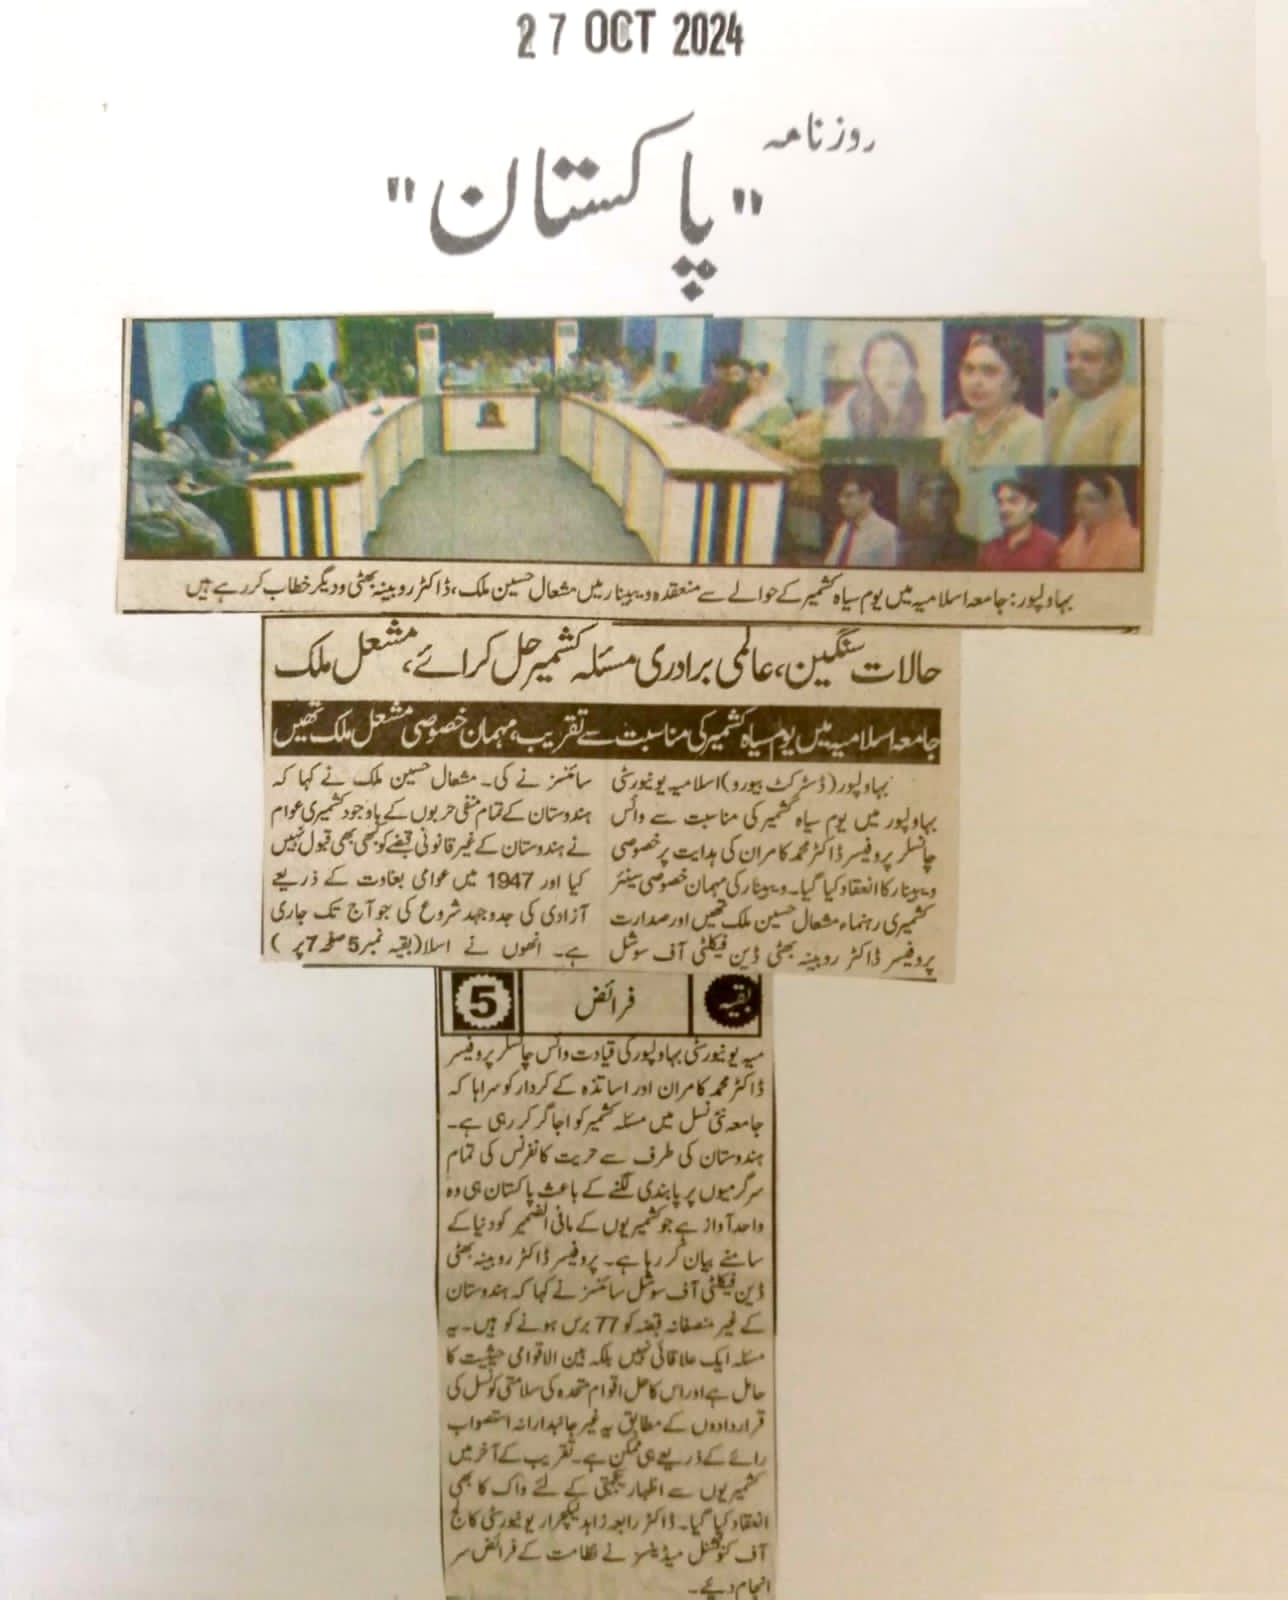 27 OCT 2024
روزنامہ
"پاکستان"
بہاولپور: جامعہ اسلامیہ میں یوم سیاہ کشمیر کے حوالے سے منعقدہ ویبینار میں مشعال حسین ملک، ڈاکٹر روبینہ بھٹی و دیگر خطاب کر رہے ہیں
حالات سنگین، عالمی برادری مسئلہ کشمیر حل کرائے، مشعل ملک
جامعہ اسلامیہ میں یوم سیاہ کشمیر کی مناسبت سے تقریب، مہمان خصوصی مشعل ملک تھیں
بہاولپور (ڈسٹرکٹ بیورو) اسلامیہ یونیورسٹی
بہاولپور میں یوم سیاہ کشمیر کی مناسبت سے وائس
چانسلر پروفیسر ڈاکٹر محمد کامران کی ہدایت پر خصوصی
ویبینار کا انعقاد کیا گیا۔ ویبینار کی مہمان خصوصی سینئر
کشمیری رہنماء مشعال حسین ملک تھیں اور صدارت
پروفیسر ڈاکٹر روبینہ بھٹی ڈین فیکلٹی آف سوشل
سائنسز نے کی۔ مشعال حسین ملک نے کہا کہ
ہندوستان کے تمام منفی حربوں کے باوجود کشمیری عوام
نے ہندوستان کے غیر قانونی قبضے کو کبھی بھی قبول نہیں
کیا اور 1947 میں عوامی بغاوت کے ذریعے
آزادی کی جدوجہد شروع کی جو آج تک جاری
ہے۔ انھوں نے اسلا (بقیہ نمبر 5 صفحہ 7 پر)
بقیہ فرائض 5
میہ یونیورسٹی بہاولپور کی قیادت وائس چانسلر پروفیسر
ڈاکٹر محمد کامران اور اساتذہ کے کردار کو سراہا کہ
جامعہ نئی نسل میں مسئلہ کشمیر کو اجاگر کر رہی ہے۔
ہندوستان کی طرف سے حریت کانفرنس کی تمام
سرگرمیوں پر پابندی لگنے کے باعث پاکستان ہی وہ
واحد آواز ہے جو کشمیریوں کے مافی الضمیر کو دنیا کے
سامنے بیان کر رہا ہے۔ پروفیسر ڈاکٹر روبینہ بھٹی
ڈین فیکلٹی آف سوشل سائنسز نے کہا کہ ہندوستان
کے غیر منصفانہ قبضہ کو 77 برس ہونے کو ہیں۔ یہ
مسئلہ ایک علاقائی نہیں بلکہ بین الاقوامی حیثیت کا
حامل ہے اور اس کا حل اقوام متحدہ کی سلامتی کونسل کی
قراردادوں کے مطابق یہ غیر جانبدارانہ استصواب
رائے کے ذریعے ہی ممکن ہے۔ تقریب کے آخر میں
کشمیریوں سے اظہار یکجہتی کے لئے واک کا بھی
انعقاد کیا گیا۔ ڈاکٹر رابعہ زاہد لیکچرار یونیورسٹی کالج
آف کنونشنل میڈیسنز نے نظامت کے فرائض سر
انجام دیئے۔